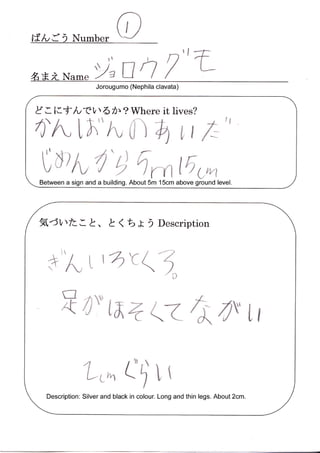 ばんごう Number ①
名まえ Name ジョロウグモ
Jorougumo (Nephila clavata)
どこにすんでいるか? Where it lives?
かんばんのあいだ
じめんから5m15cm
Between a sign and a building. About 5m 15cm above ground level.
気づいたこと、とくちょう Description
ぎんいろとくろ。
足がほそくてながい
2cmぐらい
Description: Silver and black in colour. Long and thin legs. About 2cm.